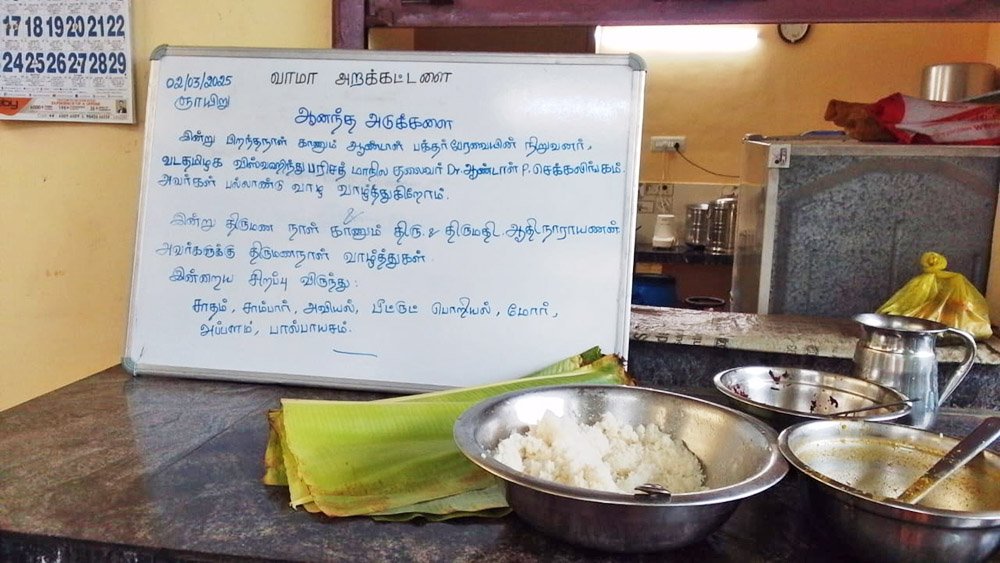 17 18 19 20 21 22
24 25 26 27 28 29
02/03/2025
ஞாயிறு
வாமா அறக்கட்டளை
ஆனந்த அடுக்களை
இன்று பிறந்தநாள் காணும் ஆண்டாள் பக்தர்பேரவையின் நிறுவனர்,
வடதமிழக விஸ்வஹிந்து பரிசத் மாநில தலைவர் Dr. ஆண்டாள் P. செக்கலிங்கம்.
அவர்கள் பல்லாண்டு வாழ வாழ்த்துகிறோம்.
இன்று திருமண நாள் காணும் திரு. & திருமதி. ஆதிநாராயணன்
அவர்களுக்கு திருமணநாள் வாழ்த்துகள்.
இன்றைய சிறப்பு விருந்து:
சாதம், சாம்பார், அவியல், பீட்ரூட் பொறியல், மோர்,
அப்பளம், பால்பாயசம்.